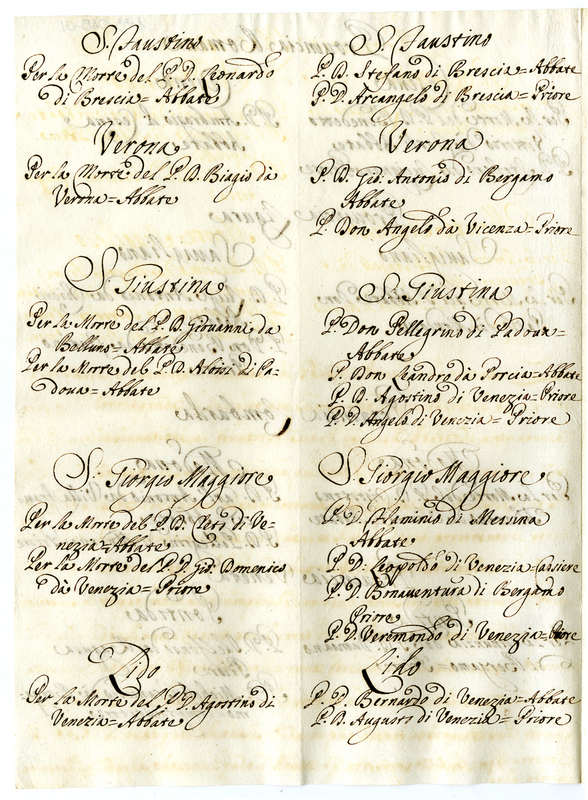 S. Faustino
Per la Morte del P. D. Leonardo
di Brescia = Abbate
Verona
Per la Morte del P. D. Biagio da
Verona = Abbate
S. Giustina
Per la Morte del P. D. Giovanni da
Belluno = Abbate
Per la Morte del P. D. Aloisi di Pa-
doua = Abbate
S. Giorgio Maggiore
Per la Morte del P. D. di Ve-
nezia = Abbate
Per la Morte del P. D. Gio: Domenico
dà Venezia = Priore
Lido
Per la Morte del P. D. Agostino di
Venezia = Abbate
S. Faustino
P. D. Stefano di Brescia = Abbate
P. D. Arcangelo di Brescia = Priore
Verona
P. D. Gio: Antonio di Bergamo
Abbate
P. Don Angelo dà Vicenza = Priore
S. Giustina
P. Don Pellegrino di Padoua =
Abbate
P. Don Leandro dà Porcia = Abbate
P. D. Agostino di Venezia = Priore
P. D. Angelo di Venezia = Priore
S. Giorgio Maggiore
P. D. Flaminio di Messina
Abbate
P. D. Leopoldo di Venezia Cassiere
P. D. Bonauentura di Bergamo
Priore
P. D. Veremondo di Venezia = Priore
Lido
P. D. Bernardo di Venezia = Abbate
P. D. August: di Venezia = Priore